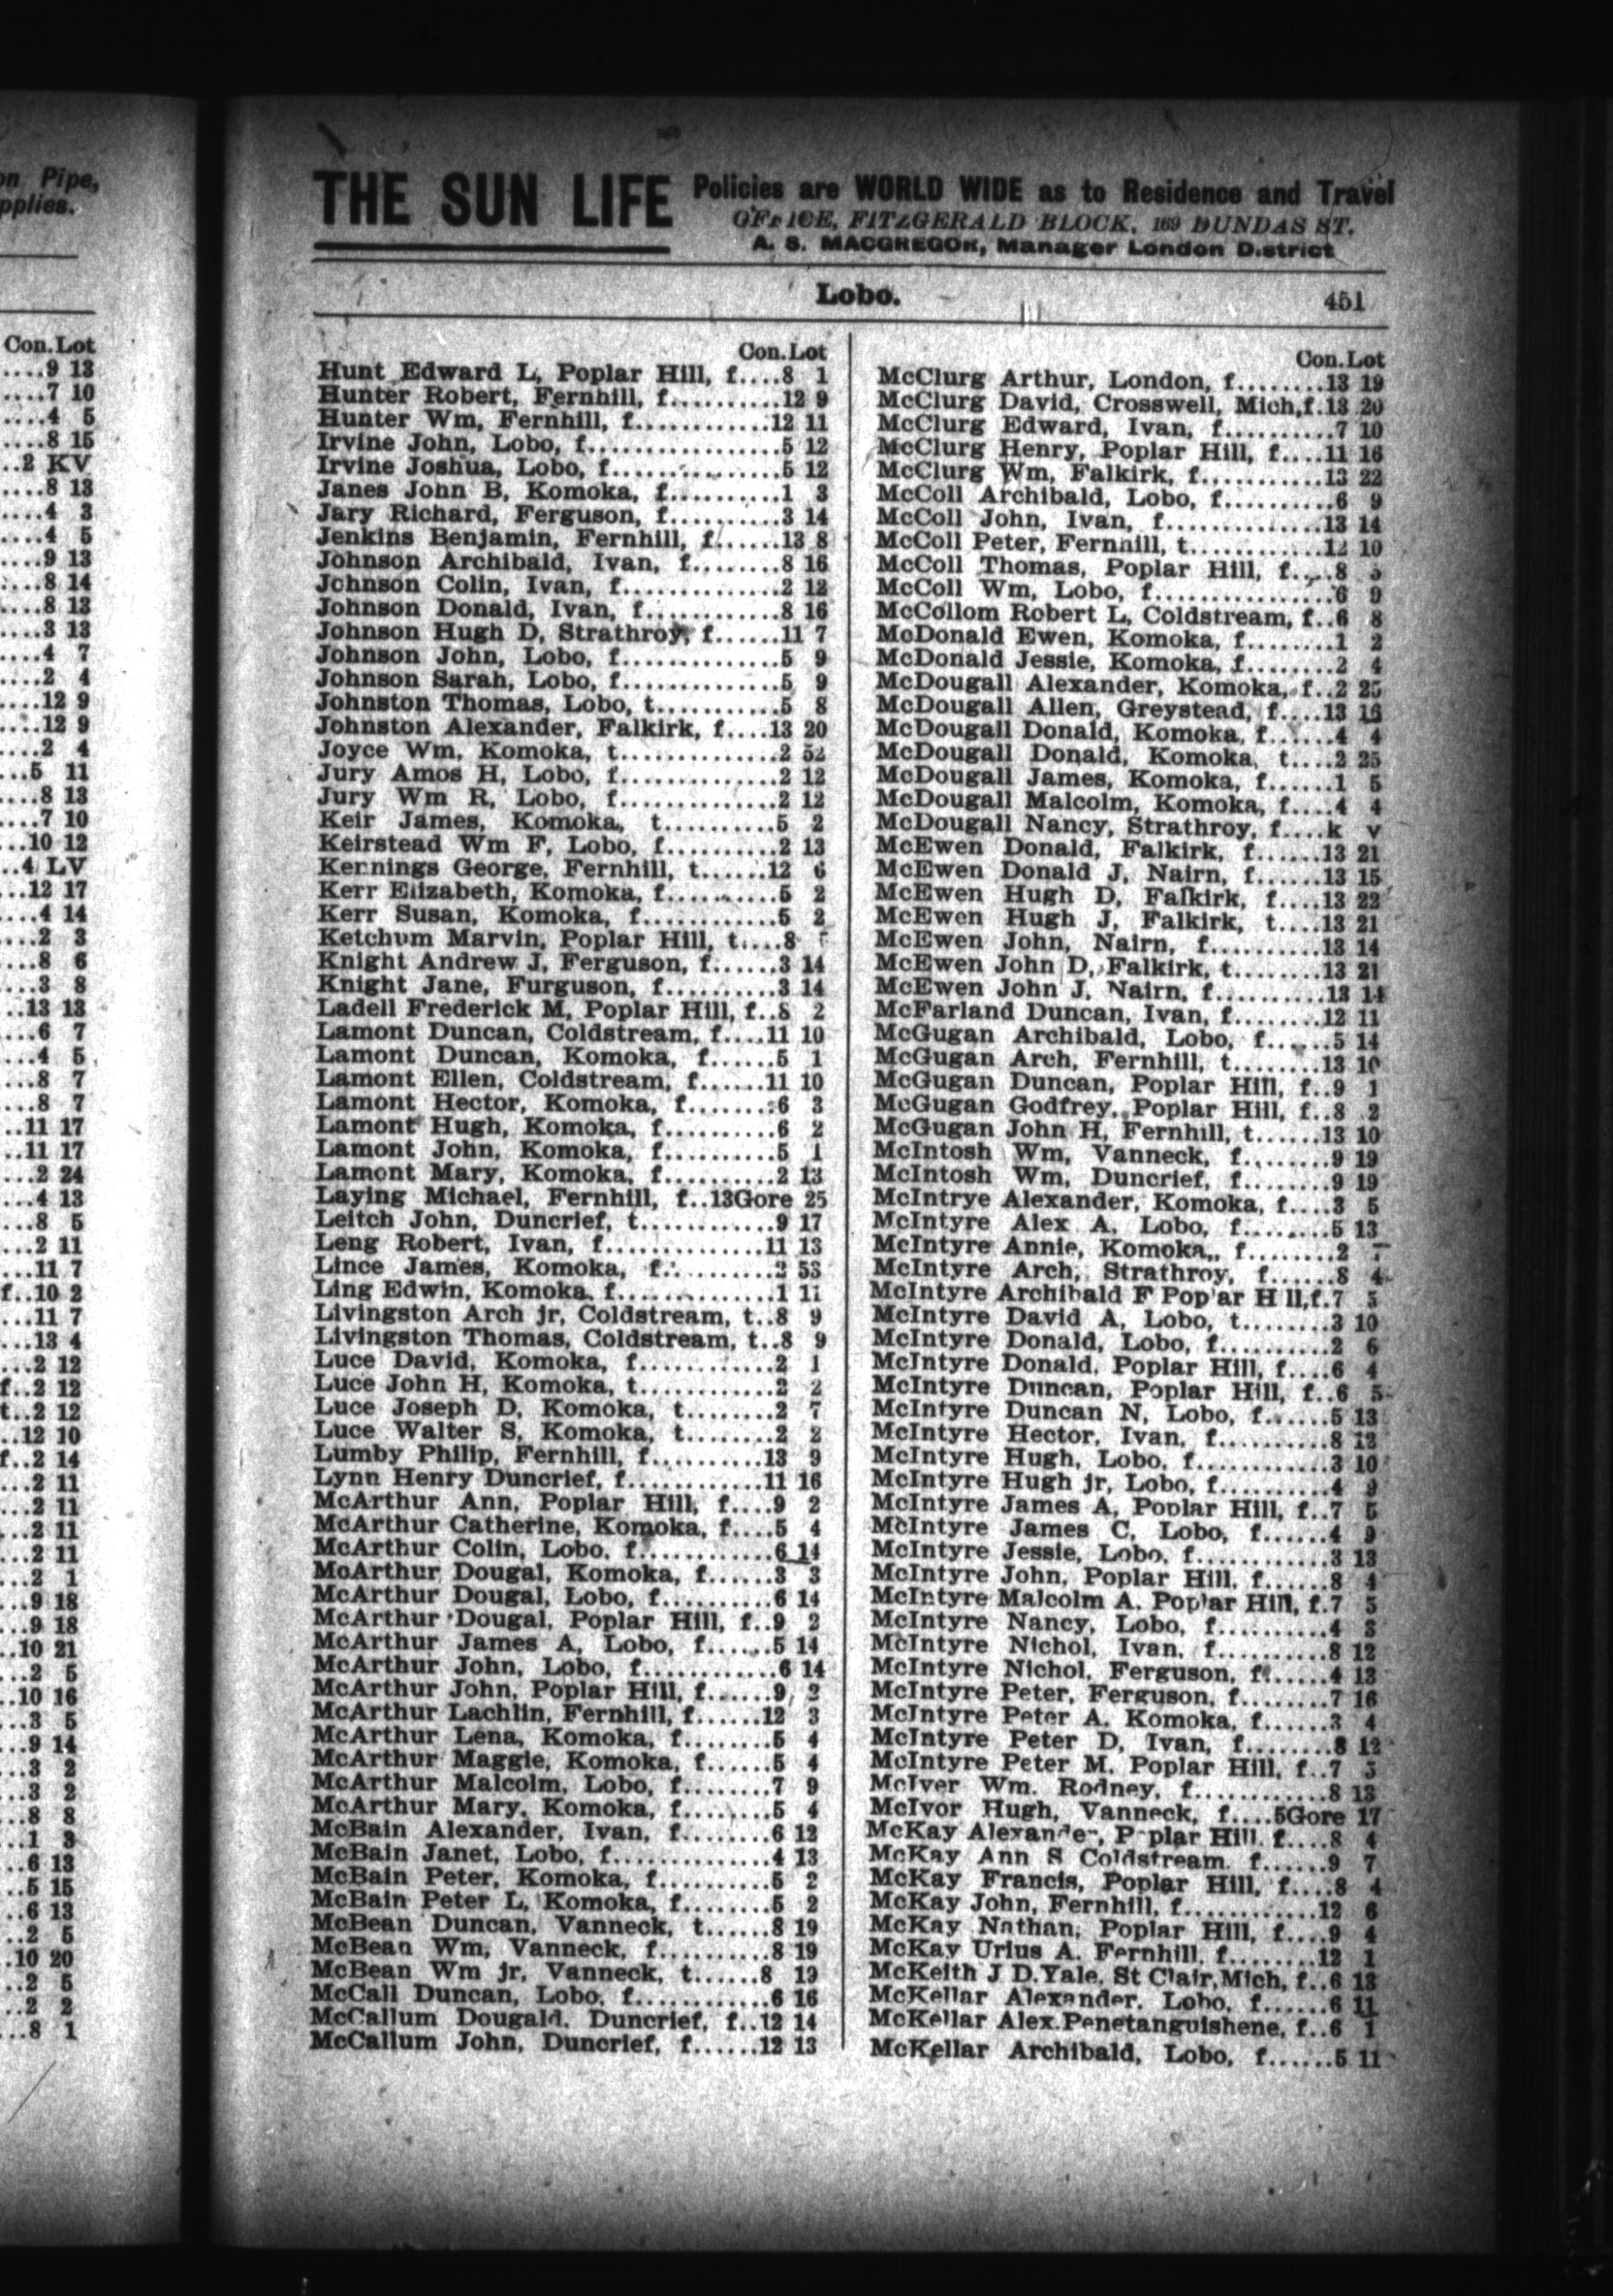 on Pipe,
pplies.
Con.Lot
....9 13
....7 10
....4 5
....8 15
..2 KV
....8 13
....4 3
....4 5
....9 13
....8 14
....8 13
....3 13
....4 7
....2 4
....12 9
....12 9
....2 4
...5 11
....8 13
....7 10
...10 12
..4 LV
...12 17
....4 14
....2 3
....8 6
....3 8
..13 13
....6 7
....4 5
....8 7
....8 7
..11 17
..11 17
...2 24
....4 13
...8 5
...2 11
...11 7
f..10 2
...11 7
...13 4
...2 12
f..2 12
t..2 12
..12 10
f..2 14
...2 11
...2 11
...2 11
...2 11
...2 1
...9 18
...9 18
..10 21
...2 5
..10 16
...3 5
...9 14
...3 2
...3 2
...8 8
...1 3
...6 13
...5 15
...6 13
...2 5
.10 20
...2 5
...2 2
...8 1
THE SUN LIFE Policies are WORLD WIDE as to Residence and Travel
OFFICE, FITZGERALD BLOCK, 169 DUNDAS ST.
A. S. MACGREGOR, Manager London District
Lobo. 451
Con.Lot
Hunt Edward L, Poplar Hill, f....8 1
Hunter Robert, Fernhill, f..........12 9
Hunter Wm, Fernhill, f............12 11
Irvine John, Lobo, f................5 12
Irvine Joshua, Lobo, f..............5 12
Janes John B, Komoka, f..........1 3
Jary Richard, Ferguson, f..........3 14
Jenkins Benjamin, Fernhill, f......13 8
Johnson Archibald, Ivan, f........8 16
Johnson Colin, Ivan, f..............2 12
Johnson Donald, Ivan, f............8 16
Johnson Hugh D, Strathroy, f......11 7
Johnson John, Lobo, f..............5 9
Johnson Sarah, Lobo, f..............5 9
Johnston Thomas, Lobo, t..........5 8
Johnston Alexander, Falkirk, f....13 20
Joyce Wm, Komoka, t..............2 52
Jury Amos H, Lobo, f..............2 12
Jury Wm R, Lobo, f................2 12
Keir James, Komoka, t..........5 2
Keirstead Wm F, Lobo, f..........2 13
Kernings George, Fernhill, t......12 6
Kerr Elizabeth, Komoka, f..........5 2
Kerr Susan, Komoka, f............5 2
Ketchum Marvin, Poplar Hill, t....8
Knight Andrew J, Ferguson, f......3 14
Knight Jane, Furguson, f..........3 14
Ladell Frederick M, Poplar Hill, f..8 2
Lamont Duncan, Coldstream, f....11 10
Lamont Duncan, Komoka, f......5 1
Lamont Ellen, Coldstream, f......11 10
Lamont Hector, Komoka, f........6 3
Lamont Hugh, Komoka, f..........6 2
Lamont John, Komoka, f..........5 1
Lamont Mary, Komoka, f..........2 13
Laying Michael, Fernhill, f..13Gore 25
Leitch John, Duncrief, t............9 17
Leng Robert, Ivan, f..............11 13
Lince James, Komoka, f............2 53
Ling Edwin, Komoka, f............1 11
Livingston Arch jr, Coldstream, t..8 9
Livingston Thomas, Coldstream, t..8 9
Luce David, Komoka, f............2 1
Luce John H, Komoka, t............2 2
Luce Joseph D, Komoka, t........2 7
Luce Walter S, Komoka, t........2 2
Lumby Philip, Fernhill, f..........13 9
Lynn Henry Duncrief, f............11 16
McArthur Ann, Poplar Hill, f....9 2
McArthur Catherine, Komoka, f....5 4
McArthur Colin, Lobo, f............6 14
McArthur Dougal, Komoka, f......3 3
McArthur Dougal, Lobo, f..........6 14
McArthur Dougal, Poplar Hill, f..9 2
McArthur James A, Lobo, f......5 14
McArthur John, Lobo, f............6 14
McArthur John, Poplar Hill, f......9 2
McArthur Lachlin, Fernhill, f......12 3
McArthur Lena, Komoka, f........5 4
McArthur Maggie, Komoka, f......5 4
McArthur Malcolm, Lobo, f........7 9
McArthur Mary, Komoka, f........5 4
McBain Alexander, Ivan, f........6 12
McBain Janet, Lobo, f..............4 13
McBain Peter, Komoka, f..........5 2
McBain Peter L, Komoka, f........5 2
McBean Duncan, Vanneck, t......8 19
McBean Wm, Vanneck, f..........8 19
McBean Wm jr, Vanneck, t......8 19
McCall Duncan, Lobo, f............6 16
McCallum Dougald, Duncrief, f..12 14
McCallum John, Duncrief, f......12 13
Con.Lot
McClurg Arthur, London, f........13 19
McClurg David, Crosswell, Mich,f.13 20
McClurg Edward, Ivan, f..........7 10
McClurg Henry, Poplar Hill, f....11 16
McClurg Wm, Falkirk, f...........13 22
McColl Archibald, Lobo, f..........6 9
McColl John, Ivan, f..............13 14
McColl Peter, Fernhill, t............12 10
McColl Thomas, Poplar Hill, f....8
McColl Wm, Lobo, f................6 9
McCollom Robert L, Coldstream, f..6 8
McDonald Ewen, Komoka, f........1 2
McDonald Jessie, Komoka, f........2 4
McDougall Alexander, Komoka, f..2 25
McDougall Allen, Greystead, f....13 16
McDougall Donald, Komoka, f......4 4
McDougall Donald, Komoka, t....2 25
McDougall James, Komoka, f......1 5
McDougall Malcolm, Komoka, f....4 4
McDougall Nancy, Strathroy, f....k v
McEwen Donald, Falkirk, f......13 21
McEwen Donald J, Nairn, f......13 15
McEwen Hugh D, Falkirk, f....13 22
McEwen Hugh J, Falkirk, t....13 21
McEwen John, Nairn, f..........13 14
McEwen John D, Falkirk, t........13 21
McEwen John J, Nairn, f..........13 14
McFarland Duncan, Ivan, f........12 11
McGugan Archibald, Lobo, f......5 14
McGugan Arch, Fernhill, t........13 10
McGugan Duncan, Poplar Hill, f..9 1
McGugan Godfrey, Poplar Hill, f..8 2
McGugan John H, Fernhill, t......13 10
McIntosh Wm, Vanneck, f........9 19
McIntosh Wm, Duncrief, f........9 19
McIntrye Alexander, Komoka, f....3 5
McIntyre Alex A, Lobo, f........5 13
McIntyre Annie, Komoka,, f........2
McIntyre Arch, Strathroy, f......8 4
McIntyre Archibald F Poplar Hill,f.7 5
McIntyre David A, Lobo, t........3 10
McIntyre Donald, Lobo, f..........2 6
McIntyre Donald, Poplar Hill, f....6 4
McIntyre Duncan, Poplar Hill, f..6 5
McIntyre Duncan N, Lobo, f......5 13
McIntyre Hector, Ivan, f..........8 12
McIntyre Hugh, Lobo, f............3 10
McIntyre Hugh jr, Lobo, f..........4 9
McIntyre James A, Poplar Hill, f..7 5
McIntyre James C, Lobo, f......4 9
McIntyre Jessie, Lobo, f............3 13
McIntyre John, Poplar Hill, f......8 4
McIntyre Malcolm A. Poplar Hill, f.7 5
McIntyre Nancy, Lobo, f..........4 3
McIntyre Nichol, Ivan, f..........8 12
McIntyre Nichol, Ferguson, f......4 13
McIntyre Peter, Ferguson, f........7 16
McIntyre Peter A. Komoka, f......3 4
McIntyre Peter D, Ivan, f........8 12
McIntyre Peter M. Poplar Hill, f..7 5
McIver Wm. Rodney, f............8 13
McIvor Hugh, Vanneck, f....5Gore 17
McKay Alexander, Poplar Hill, f....8 4
McKay Ann S Coldstream, f......9 7
McKay Francis, Poplar Hill, f....8 4
McKay John, Fernhill, f............12 6
McKay Nathan, Poplar Hill, f....9 4
McKay Urius A. Fernhill, f........12 1
McKeith J D.Yale, St Clair,Mich, f..6 13
McKellar Alexander, Lobo, f......6 11
McKellar Alex.Penetanguishene, f..6 1
McKellar Archibald, Lobo, f......5 11